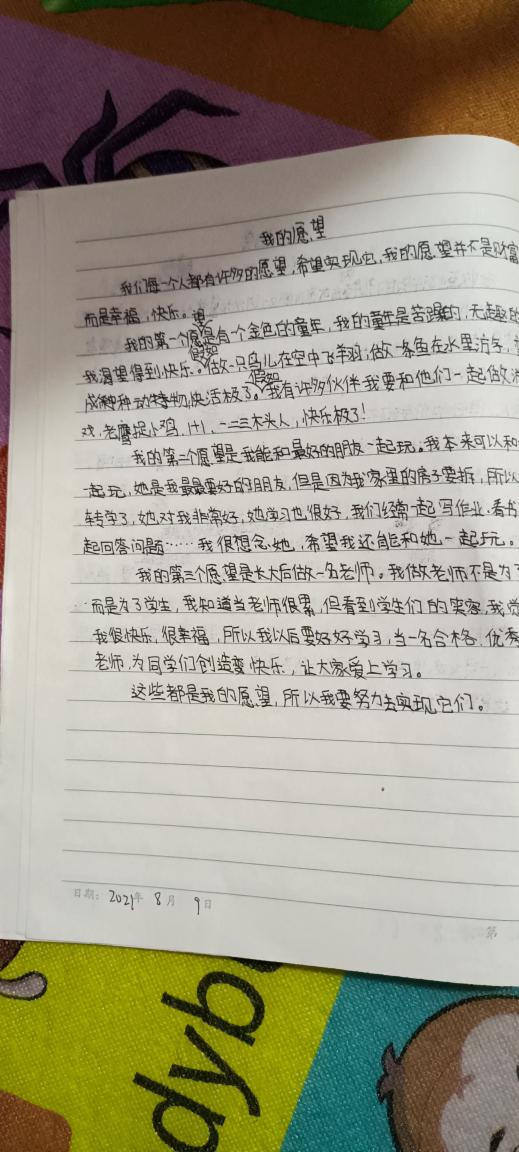 我的愿望
我们每一个人都有许多的愿望,希望实现它,我的愿望并不是财富
而是幸福,快乐。
我的第一个愿望是有一个金色的童年,我的童年是苦躁的,无趣的
我渴望得到快乐。假如做一只鸟儿在空中飞翔;做一条鱼在水里游字,
成种种动物,快活极了。假如我有许多伙伴我要和他们一起做游
戏,老鹰捉小鸡,1+1,一二三木头人,快乐极了!
我的第二个愿望是我能和最好的朋友一起玩。我本来可以和
一起玩,她是我最最要好的朋友,但是因为我家里的房子要拆,所以
转学了,她对我非常好,她学习也很好,我们经常一起写作业、看书
起回答问题……我很想念她,希望我还能和她一起玩。
我的第三个愿望是长大后做一名老师。我做老师不是为了
…而是为了学生,我知道当老师很累,但看到学生们的笑容,我觉
我很快乐,很幸福,所以我以后要好好学习,当一名合格、优秀
老师,为同学们创造变快乐,让大家爱上学习。
这些都是我的愿望,所以我要努力去实现它们。
日期: 2021年 8月 9日
第
dyb